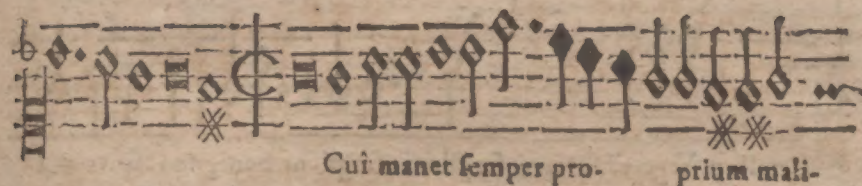 Cui manet ſemper pro- prium mali-